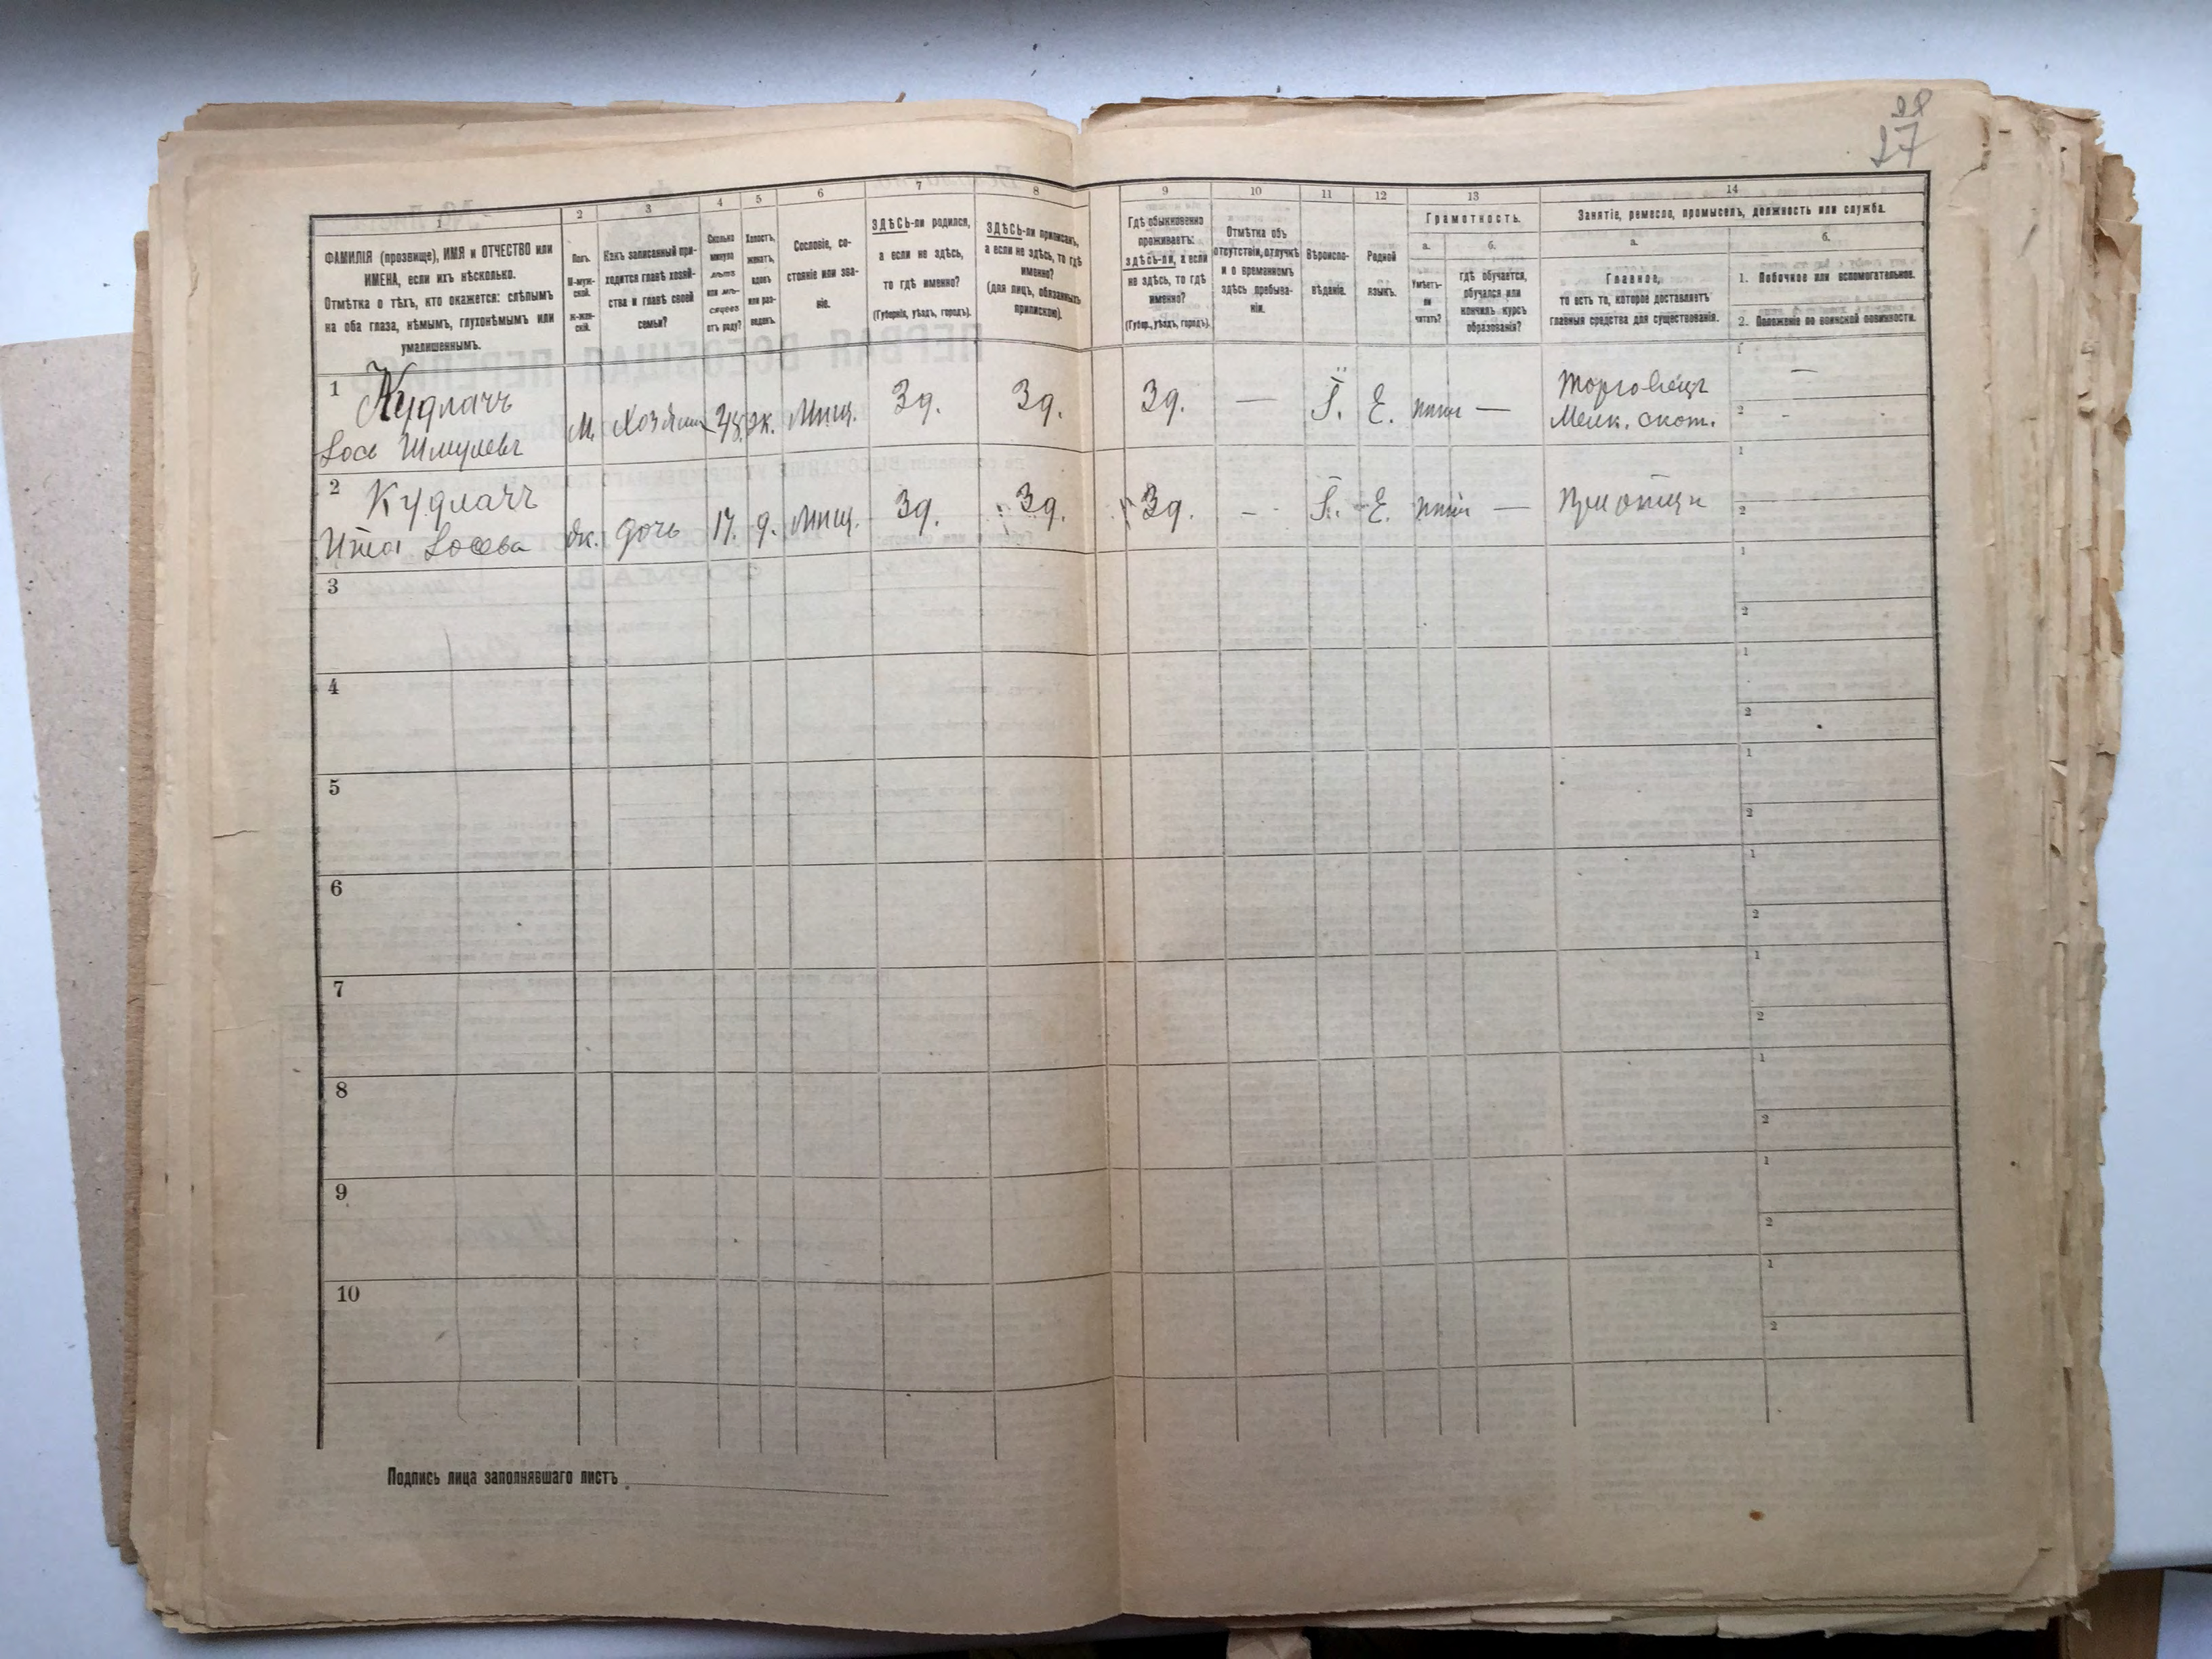 28
27
1
ФАМИЛІЯ (прозвище), ИМЯ и ОТЧЕСТВО или
ИМЕНА, если ихъ нѣсколько.
Отмѣтка о тѣхъ, кто окажется: слѣпымъ
на оба глаза, нѣмымъ, глухонѣмымъ или
умалишеннымъ.
2
Полъ.
М-муж-
ской.
Ж-жен-
скій.
3
Какъ записанный при-
ходится главѣ хозяй-
ства и главѣ своей
семьи?
4
Сколько
минуло
лѣтъ
или мѣ-
сяцевъ
отъ роду?
5
Холостъ,
женатъ,
вдовъ
или раз-
веденъ.
6
Сословіе, со-
стояніе или зва-
ніе.
7
ЗДѢСЬ-ли родился,
а если не здѣсь,
то гдѣ именно?
(Губернія, уѣздъ, городъ).
8
ЗДѢСЬ-ли приписанъ,
а если не здѣсь, то гдѣ
именно?
(для лицъ, обязанныхъ
припискою).
9
Гдѣ обыкновенно
проживаетъ:
здѣсь-ли, а если
не здѣсь, то гдѣ
именно?
(Губер., уѣздъ, городъ).
10
Отмѣтка объ
отсутствіи, отлучкѣ
и о временномъ
здѣсь пребыва-
ніи.
11
Вѣроиспо-
вѣданіе.
12
Родной
языкъ.
13
Грамотность.
а.
Умѣетъ-
ли
читать?
б.
гдѣ обучается,
обучался или
кончилъ курсъ
образованія?
14
Занятіе, ремесло, промыселъ, должность или служба.
а.
Главное,
то есть то, которое доставляетъ
главныя средства для существованія.
б.
1. Побочное или вспомогательное.
2. Положеніе по воинской повинности.
1 Кудлачъ
Шмулевъ
М. Хозяин ж. Мѣщ. Зд. Зд. Зд. — І. Е. — Торговецъ
Мелк. скот.
1 —
2 -
2 Кудлачъ
Ита
ж. дочь 17. д. Мѣщ. Зд. Зд. Зд. - І. Е. — При отцѣ
1
2
3
1
2
4
1
2
5
1
2
6
1
2
7
1
2
8
1
2
9
1
2
10
1
2
Подпись лица заполнявшаго листъ